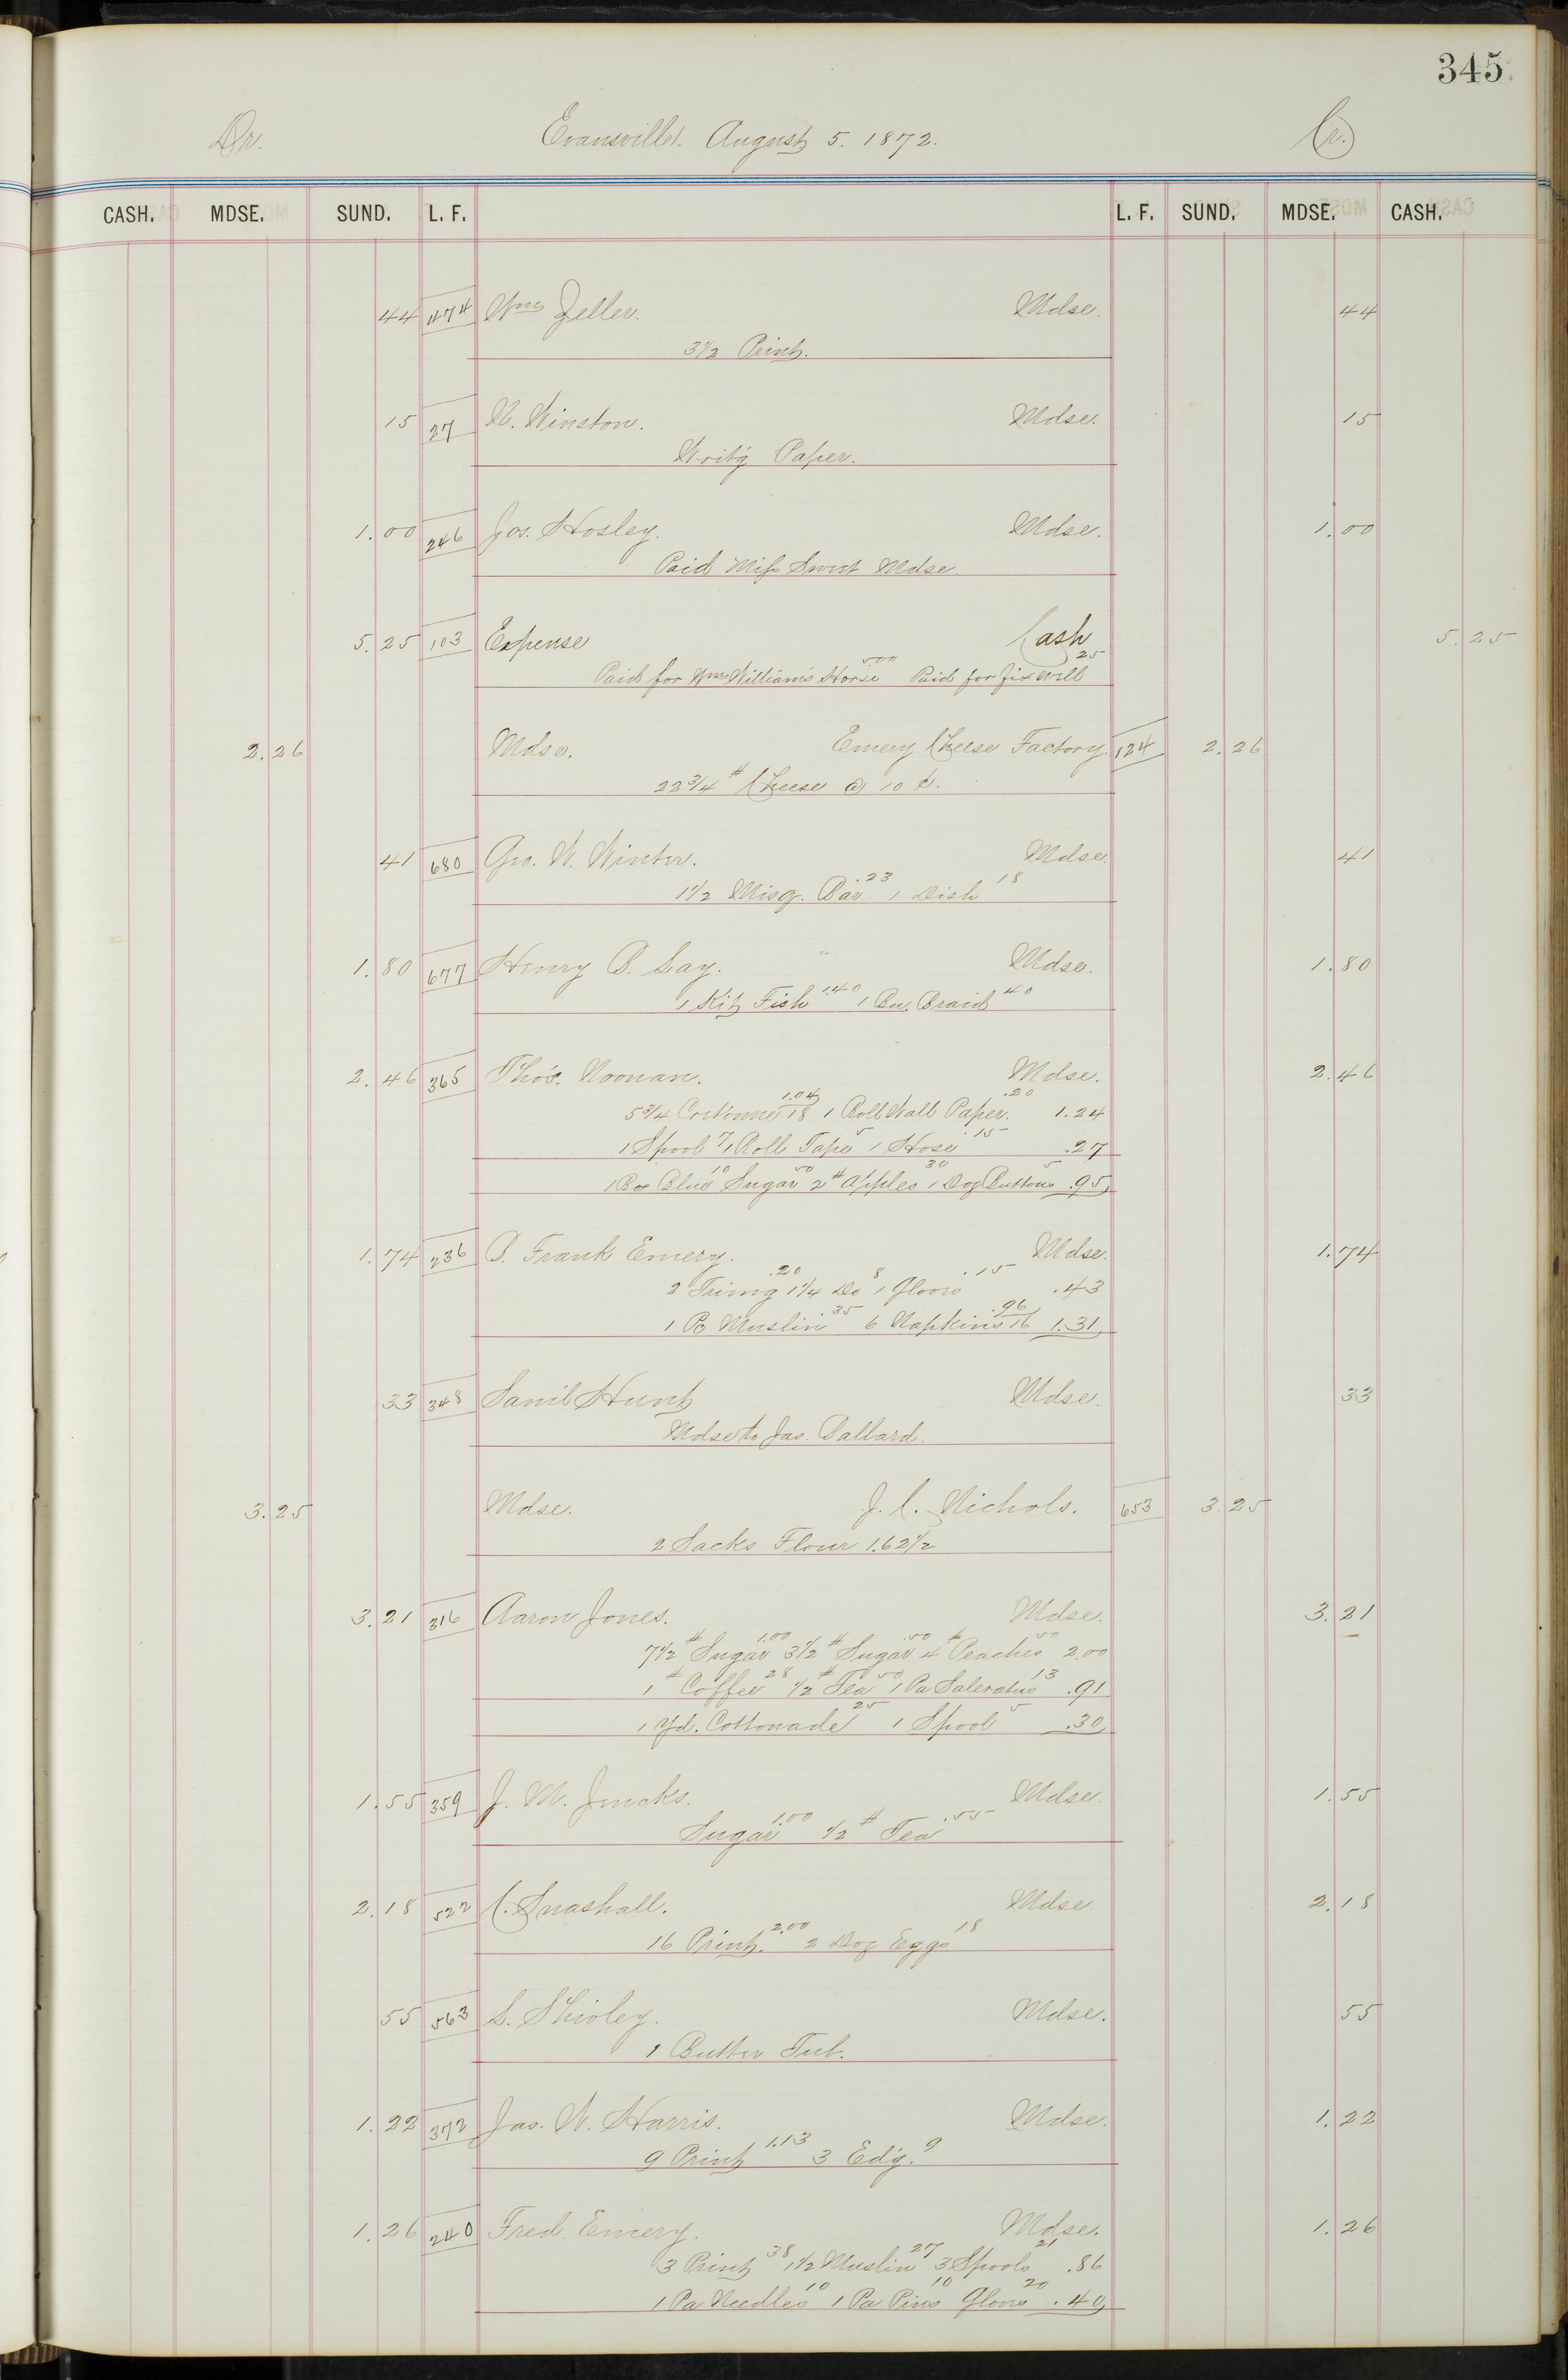 345
Dr. Evansville. August 5. 1872. Cr.
CASH. MDSE. SUND. L. F. L. F. SUND. MDSE. CASH.
44 474 Wm Zeller. Mdse. 44
3 1/2 Print.
15 27 N. Winston. Mdse. 15
Writ'g Paper.
1.00 246 Jos. Hosley. Mdse. 1.00
Paid Miss Mdse
5.25 103 Expense Cash 5.25
Paid for Wm Williams Horse 5.00 Paid for fix well 25
2.26 Mdse. Emery Cheese Factory 124 2.26
22 3/4 # Cheese @ 10 ¢.
41 680 Geo. W. Winter. Mdse. 41
1 1/2 Misq. Bar .23 1 Dish 18
1.80 677 Henry B. Mdse. 1.80
1 Kit Fish 1.40 1 Bu. Braid 40
2.46 365 Thos. Noonan. Mdse. 2.46
5 3/4 18 1.04 1 Roll Wall Paper. .20 1.24
1 Spool 7 1 Roll Tape 5 1 Hose .15 .27
1 Box Blue 10 Sugar 50 2 # Apples 30 1 Doz Buttons 5 .95
1.74 236 B. Frank Emery. Mdse. 1.74
2 Trimg .20 1 1/4 Do 8 1 Gloves .15 .43
1 Muslin .35 6 Napkins 16 .96 1.31
33 348 Saml Hunt Mdse. 33
Mdse to Jas. Ballard.
3.25 Mdse. J. C. Nichols. 653 3.25
2 Sacks Flour 1.62 1/2
3.21 316 Aaron Jones. Mdse. 3.21
7 1/2 # Sugar 1.00 3 1/2 # Sugar .50 4 # Peaches 50 2.00
1 # Coffee 28 1/2 # Tea 50 1 Pa Saleratus 13 .91
1 Yd. Cottonade 25 1 Spool 5 .30
1.55 359 J. M. Jencks. Mdse. 1.55
Sugar 1.00 1/2 # Tea .55
2.18 522 C. Snashall. Mdse 2.18
16 Print. 2.00 2 Doz Eggs 18
55 563 Mdse. 55
1 Butter Tub.
1.22 372 Jas. W. Harris. Mdse. 1.22
9 Print 1.13 3 Ed'g. 9
1.26 240 Fred. Emery. Mdse. 1.26
3 Print 38 1 1/2 Muslin 27 3 Spools 21 .86
1 Pa Needles 10 1 Pa Pins 10 Gloves 20 .40